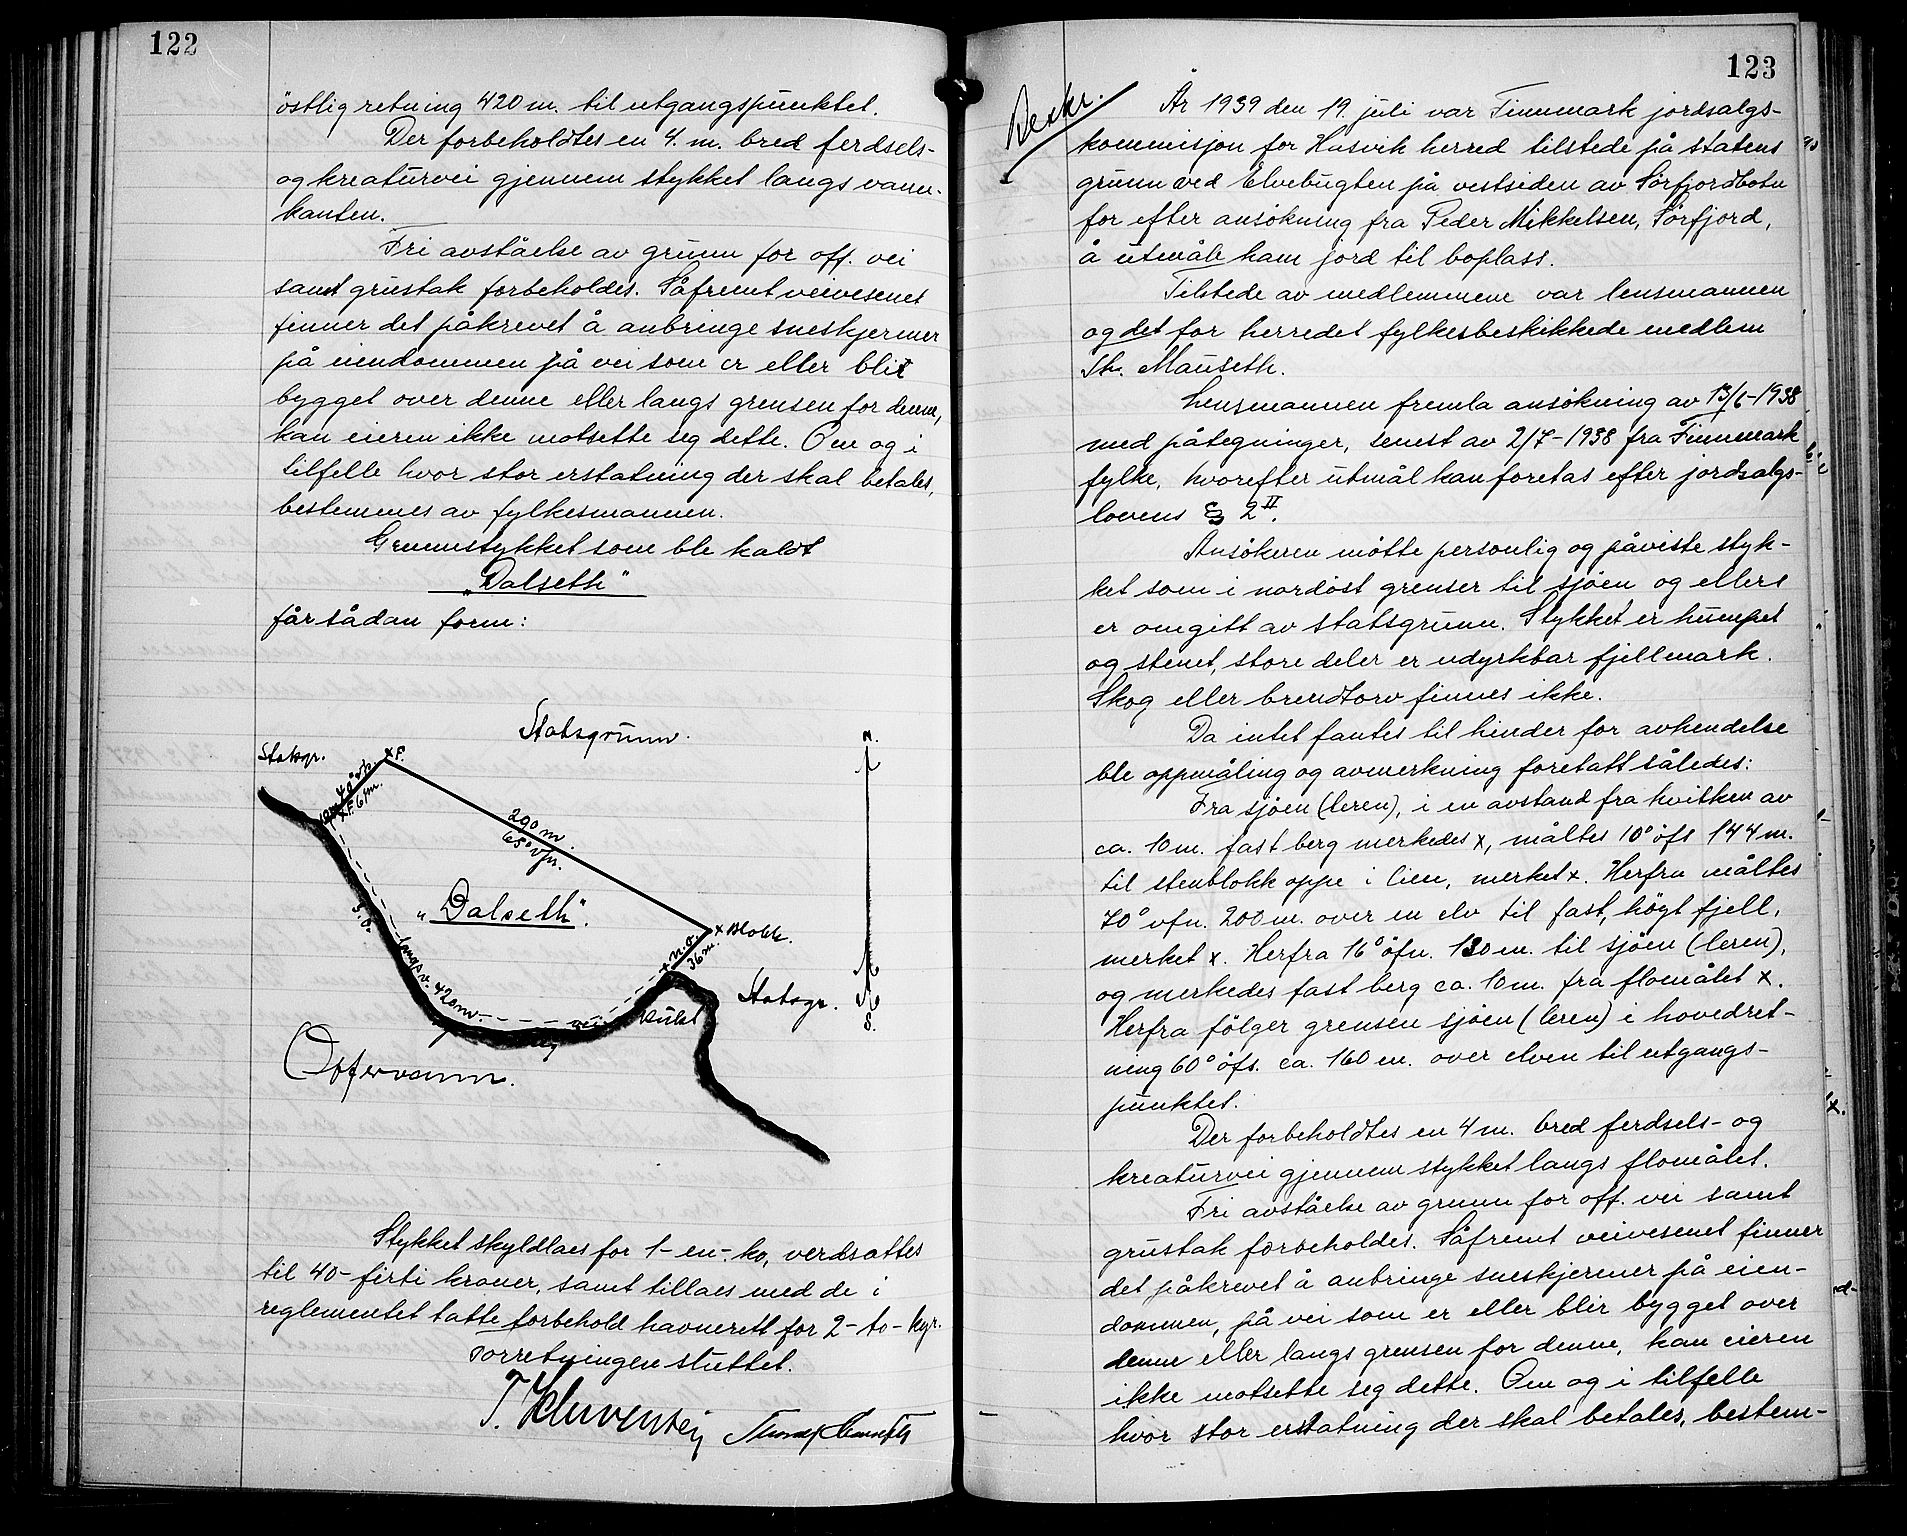 122
östlig retning 420 m. til utgangspunktet.
Der forbeholdtes en 4. m. bred ferdsels-
og kreaturvei gjennem stykket langs vann-
kanten.
Fri avståelse av grunn for off. vei
samt grustak forbeholdes. Såfremt veivesenet
finner det påkrevet å anbringe sneskjermer
på eiendommen på vei som er eller blir
bygget over denne eller langs grensen for denne,
kan eieren ikke motsette seg dette. Om og i
tilfelle hvor stor erstatning der skal betales,
bestemmes av fylkesmannen.
Grunnstykket som ble kaldt
"Dalseth"
får sådan form:
Statsgrunn.
Statsgr.
x F.
x F. 6 m.
290 m.
68° vfn.
N.
"Dalseth".
x Blokk.
n.ö.
36 m.
s.ö.
langs v. 420 m.
vei
Statsgr.
S.
Offervann.
Stykket skyldlaes for 1- en- ko, verdsattes
til 40- firti kroner, samt tillaes med de i
reglementet tatte forbehold havnerett for 2- to- kyr.
Forretningen sluttet.
123
Beskr.
År 1939 den 19. juli var Finnmark jordsalgs-
kommisjon for Hasvik herred tilstede på statens
grunn ved Elvebugten på vestsiden av Sörfjordbotn
for efter ansökning fra Peder Mikkelsen, Sörfjord,
å utmåle ham jord til boplass.
Tilstede av medlemmene var lensmannen
og det for herredet fylkesbeskikkede medlem
Th. Mauseth.
Lensmannen fremla ansökning av 13/6-1938
med påtegninger, senest av 2/7-1938 fra Finnmark
fylke, hvorefter utmål kan foretas efter jordsalgs-
lovens § 2 II.
Ansökeren mötte personlig og påviste styk-
ket som i nordöst grenser til sjöen og ellers
er omgitt av statsgrunn. Stykket er humpet
og stenet, store deler er udyrkbar fjellmark.
Skog eller brendtorv finnes ikke.
Da intet fantes til hinder for avhendelse
ble oppmåling og avmerkning foretatt således:
Fra sjöen (leren), i en avstand fra hvilken av
ca. 10 m. fast berg merkedes x, måltes 10° öfs 144 m.
til stenblokk oppe i lien, merket x. Herfra måltes
70° vfn. 200 m. over en elv til fast, högt fjell,
merket x. Herfra 16° öfn. 130 m. til sjöen (leren),
og merkedes fast berg ca. 10 m. fra flomålet x.
Herfra fölger grensen sjöen (leren) i hovedret-
ning 60° öfs. ca. 160 m. over elven til utgangs-
punktet.
Der forbeholdtes en 4 m. bred ferdsels- og
kreaturvei gjennem stykket langs flomålet.
Fri avståelse av grunn for off. vei samt
grustak forbeholdes. Såfremt veivesenet finner
det påkrevet å anbringe sneskjermer på eien-
dommen, på vei som er eller blir bygget over
denne eller langs grensen for denne, kan eieren
ikke motsette seg dette. Om og i tilfelle
hvor stor erstatning der skal betales, bestem-